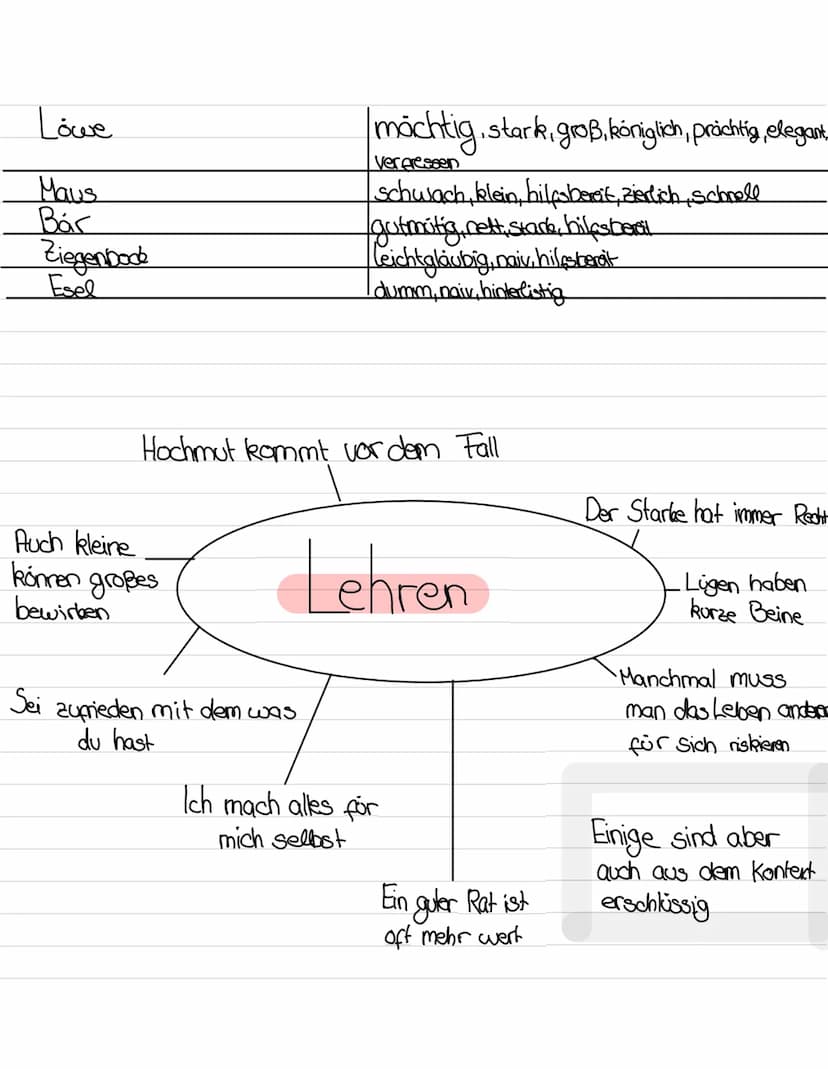 Löwe
mächtig, stark, groß, königlich, prächtig, elegant,
verfressen
Maus
schwach, klein, hilfsbereit, zierlich, schnell
Bär
gutmütig, nett, stark, hilfsbereit
Ziegenbock
leichtgläubig, naiv, hilfsbereit
Esel
dumm, naiv, hinterlistig
Hochmut kommt vor dem Fall
Der Starke hat immer Recht
Auch kleine
können großes
bewirken
Lehren
Lügen haben
kurze Beine
Manchmal muss
man das Leben andrer
für sich riskieren
Sei zufrieden mit dem was
du hast
Ich mach alles für
mich selbst
Ein guter Rat ist
oft mehr wert
Einige sind aber
auch aus dem Kontext
erschlüssig